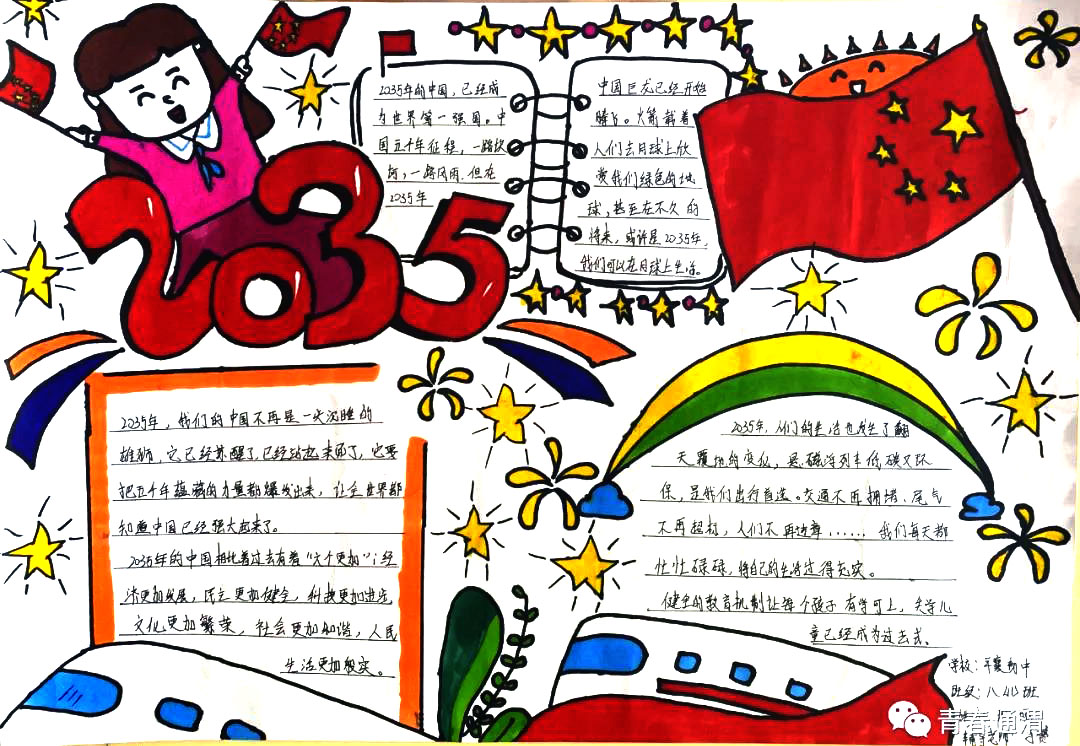 2035
2035年的中国，已经成
为世界第一强国。中
国五千年征程，一路坎
坷，一路风雨.但在
2035年
中国巨龙已经开始
腾飞。火箭载着
人们去月球上欣
赏我们绿色的地
球，甚至在不久的
将来，或许是2035年，
我们可以在月球上生活。
2035年，我们的中国不再是一头沉睡的
雄狮，它已经苏醒了，已经站起来了，它要
把五千年蕴藏的力量都爆发出来，让全世界都
知道中国已经强大起来了。
2035年的中国相比着过去有着“六个更加”：经
济更加发展，民主更加健全，科技更加进步
文化更加繁荣，社会更加和谐，人民
生活更加殷实。
2035年，人们的生活也发生了翻
天覆地的变化，悬磁浮列车低碳又环
保，是我们出行首选。交通不再拥堵、尾气
不再超标，人们不再边靠......我们每天都
忙忙碌碌，将自己的生活过得充实。
健全的教育机制让每个孩子有学可上，失学儿
童已经成为过去式.
学校：平襄初中
班级：八.4班
青春通渭